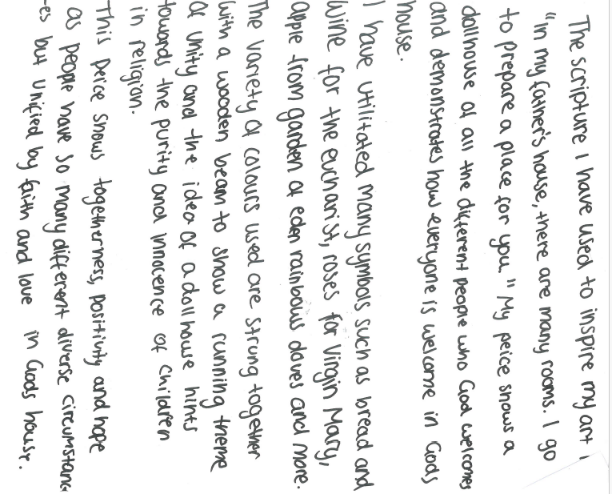 The scripture I have used to inspire my art i
"In my father's house, there are many rooms. I go
to prepare a place for you." My peice shows a
dollhouse of all the different people who God welcomes
and demonstrates how everyone is welcome in Gods
house.
I have utilitated many symbols such as bread and
wine for the eucharist, roses for Virgin Mary,
apple from garden of eden rainbows doves and more.
The variety of colours used are strung together
with a wooden beam to show a running theme
of unity and the idea of a doll house hints
towards the purity and innocence of children
in religion.
This peice shows togetherness, positivity and hope
as people have so many different diverse circumstanc
-es but unified by faith and love in Gods house.